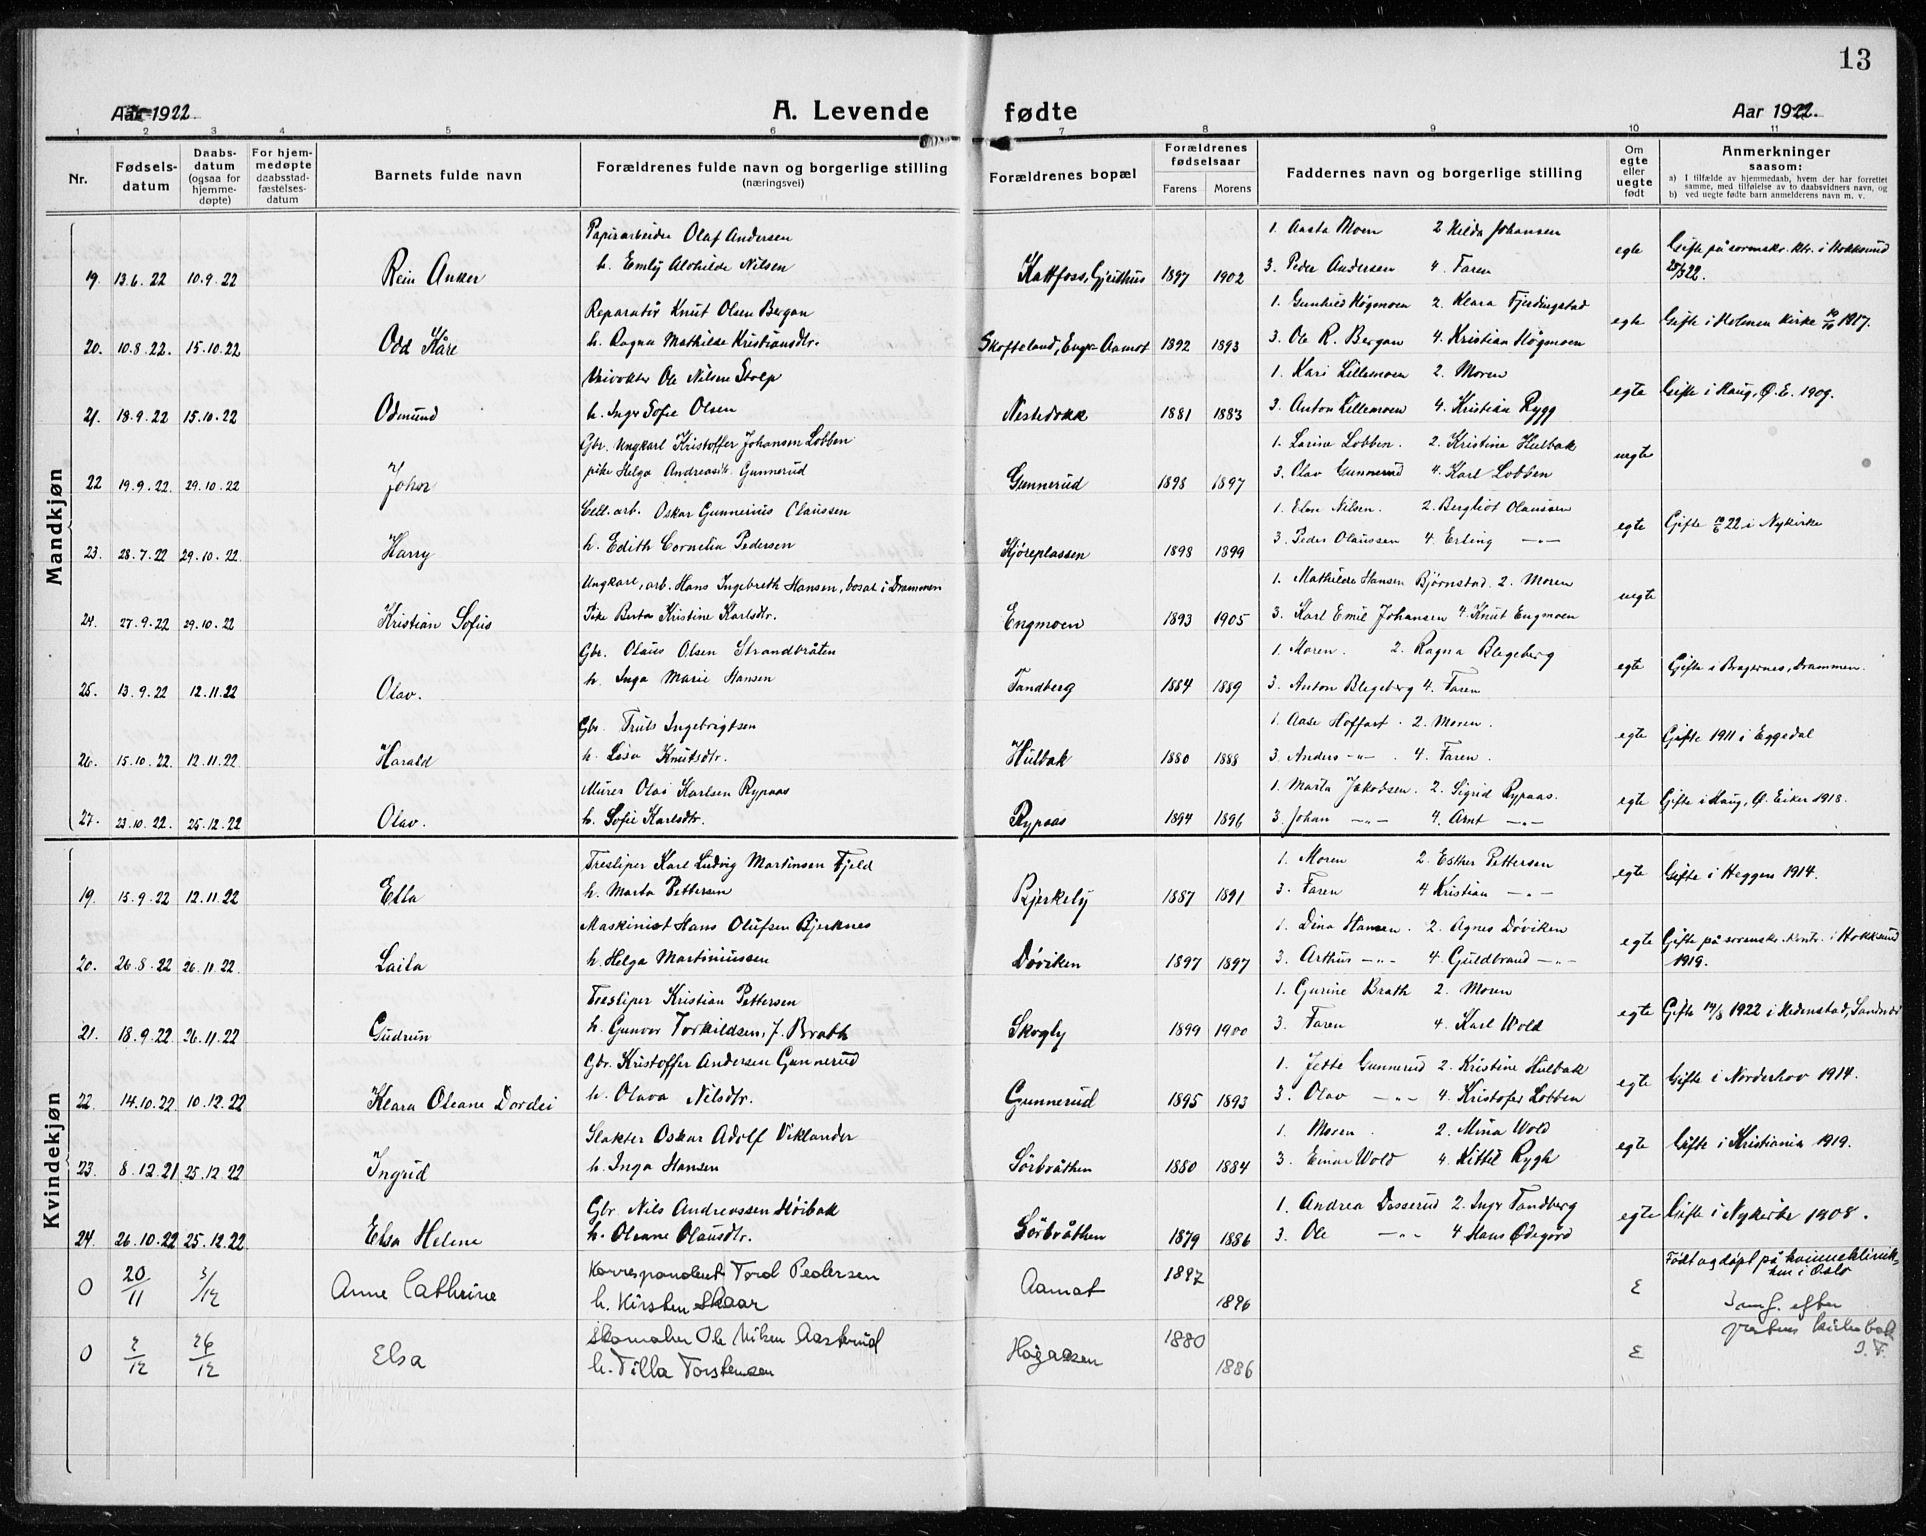 13
Aar 1922.
A. Levende fødte
Aar 1922.
1 2 3 4 5 6 7 8 9 10 11
Nr.
Fødsels-
datum
Daabs-
datum
(ogsaa for
hjemme-
døpte)
For hjem-
medøpte
daabsstad-
fæstelses-
datum
Barnets fulde navn
Forældrenes fulde navn og borgerlige stilling
(næringsvei)
Forældrenes bopæl
Forældrenes
fødselsaar
Farens Morens
Faddernes navn og borgerlige stilling
Om
egte
eller
uegte
født
Anmerkninger
saasom:
a) I tilfælde av hjemmedaab, hvem der har forrettet
samme, med tilføielse av to daabsvidners navn, og
b) ved uegte fødte barn anmelderens navn m. v.
Mandkjøn
Papirarbeider Olaf Andersen 1. Aasta Moen 2 Hilda Johansen
19. 13.6.22 10.9.22 Rein Anker h. Emly Alvhilde Nilsen Kattfoss, Gjeithus 1897 1902 3. Peder Andersen 4. Faren egte Gifte på sorenskr. ktr. i Hokksund
Reparatør Knut Olsen Bergan 1. Gunhild Høgmoen 2. Klara Fjerdingstad
20. 10.8.22. 15.10.22 Odd Kåre h. Ragna Mathilde Kristiansdtr. Skofteland, Enger Aamot 1892 1893 3. Ole R. Bergan 4. Kristian Høgmoen egte Gifte i Holmen Kirke 1917.
Veivokter Ole Nilsen Stolp 1. Kari Lillemoen 2. Moren
21. 18.9.22 15.10.22 Odmund h. Inga Sofie Olsen Nestedokk 1881 1883 3. Anton Lillemoen 4. Kristian Rygg egte Gifte i Haug, Ø. E. 1909.
Gbr. Ungkarl Kristoffer Johansen Lobben 1. Larina Lobben. 2. Kristine Hulbak
22 19.9.22. 29.10.22 Johor pike Helga Andreasdtr. Gunnerud Gunnerud 1898 1897 3. Olav Gunnerud 4. Karl Lobben uegte
Cell. arb. Oskar Gunnerius Olaussen 1. Elen Nilsen. 2. Bergliot Olaussen
23. 28.7.22 29.10.22 Harry h. Edith Cornelia Pedersen Kjøreplassen 1898 1899 3. Peder Olaussen 4. Erling -"- egte Gifte 22 i Nykirke
Ungkarl, arb. Hans Ingebreth Hansen, bosat i Drammen 1. Mathilde Hansen Bjørnstad 2. Moren
24. 27.9.22 29.10.22 Kristian Sofus Pike Berta Kristine Karlsdtr. Engmoen 1893 1905 3. Karl Emil Johansen 4 Knut Engmoen uegte
Gbr. Olaus Olsen Strandbråten 1. Moren. 2. Ragna Blegeberg
25. 13.9.22 12.11.22 Olav. h. Inga Marie Hansen Tandberg 1884 1889 3. Anton Blegeberg 4. Faren egte Gifte i Bragernes, Drammen.
Gbr. Truls Ingebrigtsen 1. Aase Hoffart. 2. Moren.
26. 15.10.22. 12.11.22 Harald h. Lisa Knutsdtr. Hulbak 1880 1888 3. Anders -"-. 4. Faren. egte Gifte 1911 i Eggedal
Murer Olai Karlsen Rypaas 1. Marta Jakobsen. 2. Sigrid Rypaas.
27. 23.10.22. 25.12.22 Olav. h. Sofie Karlsdtr. Rypaas 1894 1896 3. Johan -"- 4. Arnt -"- egte Gifte i Haug, Ø. Eiker 1918.
Kvindekjøn
Tresliper Karl Ludvig Martinsen Fjeld 1. Moren 2. Esther Pettersen
19. 15.9.22 12.11.22 Ella h. Marta Pettersen Bjerkely 1887 1891 3. Faren 4 Kristian -"- egte Gifte i Heggen 1914.
Maskinist Hans Olufsen Bjerknes 1. Dina Hansen. 2. Agnes Døviken
20. 26.8.22 26.11.22. Laila h. Helga Martiniussen Døviken 1897 1897 3. Arthur -"- 4. Guldbrand -"- egte Gifte på sorenskr. kontr. i Hokksund
1919.
Tresliper Kristian Pettersen 1. Gurine Brath 2. Moren
21. 18.9.22 26.11.22 Gudrun h. Gunvor Torkildsen, f. Brath Skogly 1899 1900 3. Faren 4. Karl Wold egte Gifte 1922 i Hedenstad, Sandsvær
Gbr. Kristoffer Andersen Gunnerud 1. Jette Gunnerud 2. Kristine Hulbak
22. 14.10.22 10.12.22 Klara Oleane Dordei h. Olava Nilsdtr. Gunnerud 1895 1893 3. Olav -"- 4. Kristofer Lobben egte Gifte i Norderhov 1914.
Slakter Oskar Adolf Viklander 1. Moren. 2. Mina Wold
23. 8.12.21 25.12.22 Ingrid h. Inga Hansen Sørbråthen 1880 1884 3. Einar Wold 4. Kittil Rygh egte Gifte i Kristiania 1919.
Gbr. Nils Andreassen Høibak 1. Andrea Dosserud 2. Inga Tandberg
24. 26.10.22 25.12.22 Elsa Helene h. Oleane Olausdtr. Sørbråthen 1879 1886 3. Ole -"- 4 Hans Ødegård egte Gifte i Nykirke 1908.
0 20/11 3/12 Anne Cathrine Korrespondent Tord Pedersen Aamot 1897 E Født og døpt på kvinneklinik-
ken i Oslo
h. Kirsten Skaar 1896
0 2/12 26/12 Elsa Skomaker Ole Nilsen Aaserud Høgaasen 1880 E Innf. efter
prestens kirkebok
h. Tilla Torstensen 1886